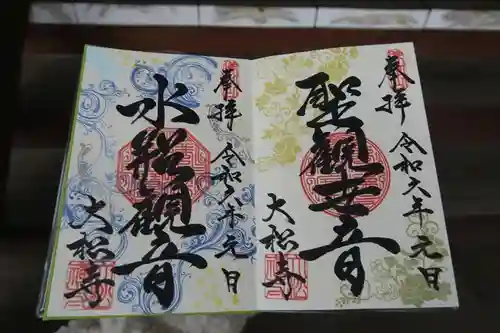 奉拝
令和六年元日
聖観世音
大松寺
奉拝
令和六年元日
観音
大松寺